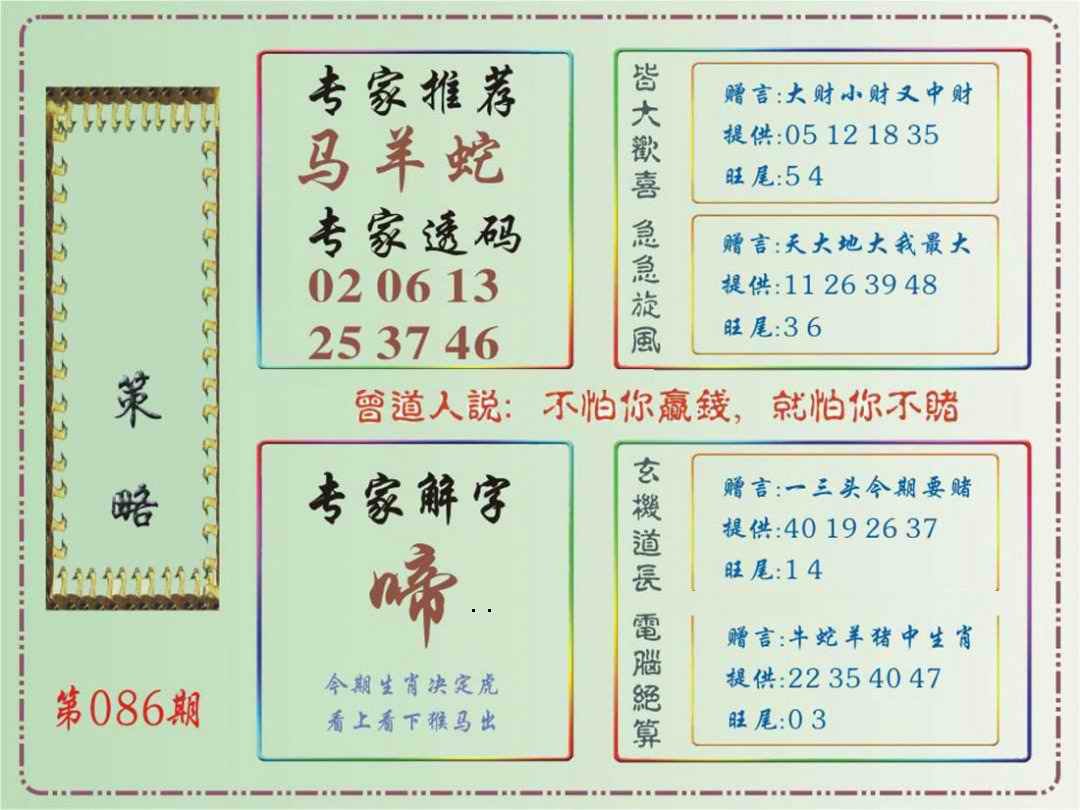 策
略
第086期
专家推荐
马羊蛇
专家透码
02 06 13
25 37 46
皆大歡喜
赠言:大财小财又中财
提供:05 12 18 35
旺尾:5 4
急急旋風
赠言:天大地大我最大
提供:11 26 39 48
旺尾:3 6
曾道人説: 不怕你赢錢, 就怕你不賭
专家解字
啼..
今期生肖决定虎
看上看下猴马出
玄機道長
赠言:一三头今期要赌
提供:40 19 26 37
旺尾:1 4
電腦絕算
赠言:牛蛇羊猪中生肖
提供:22 35 40 47
旺尾:0 3